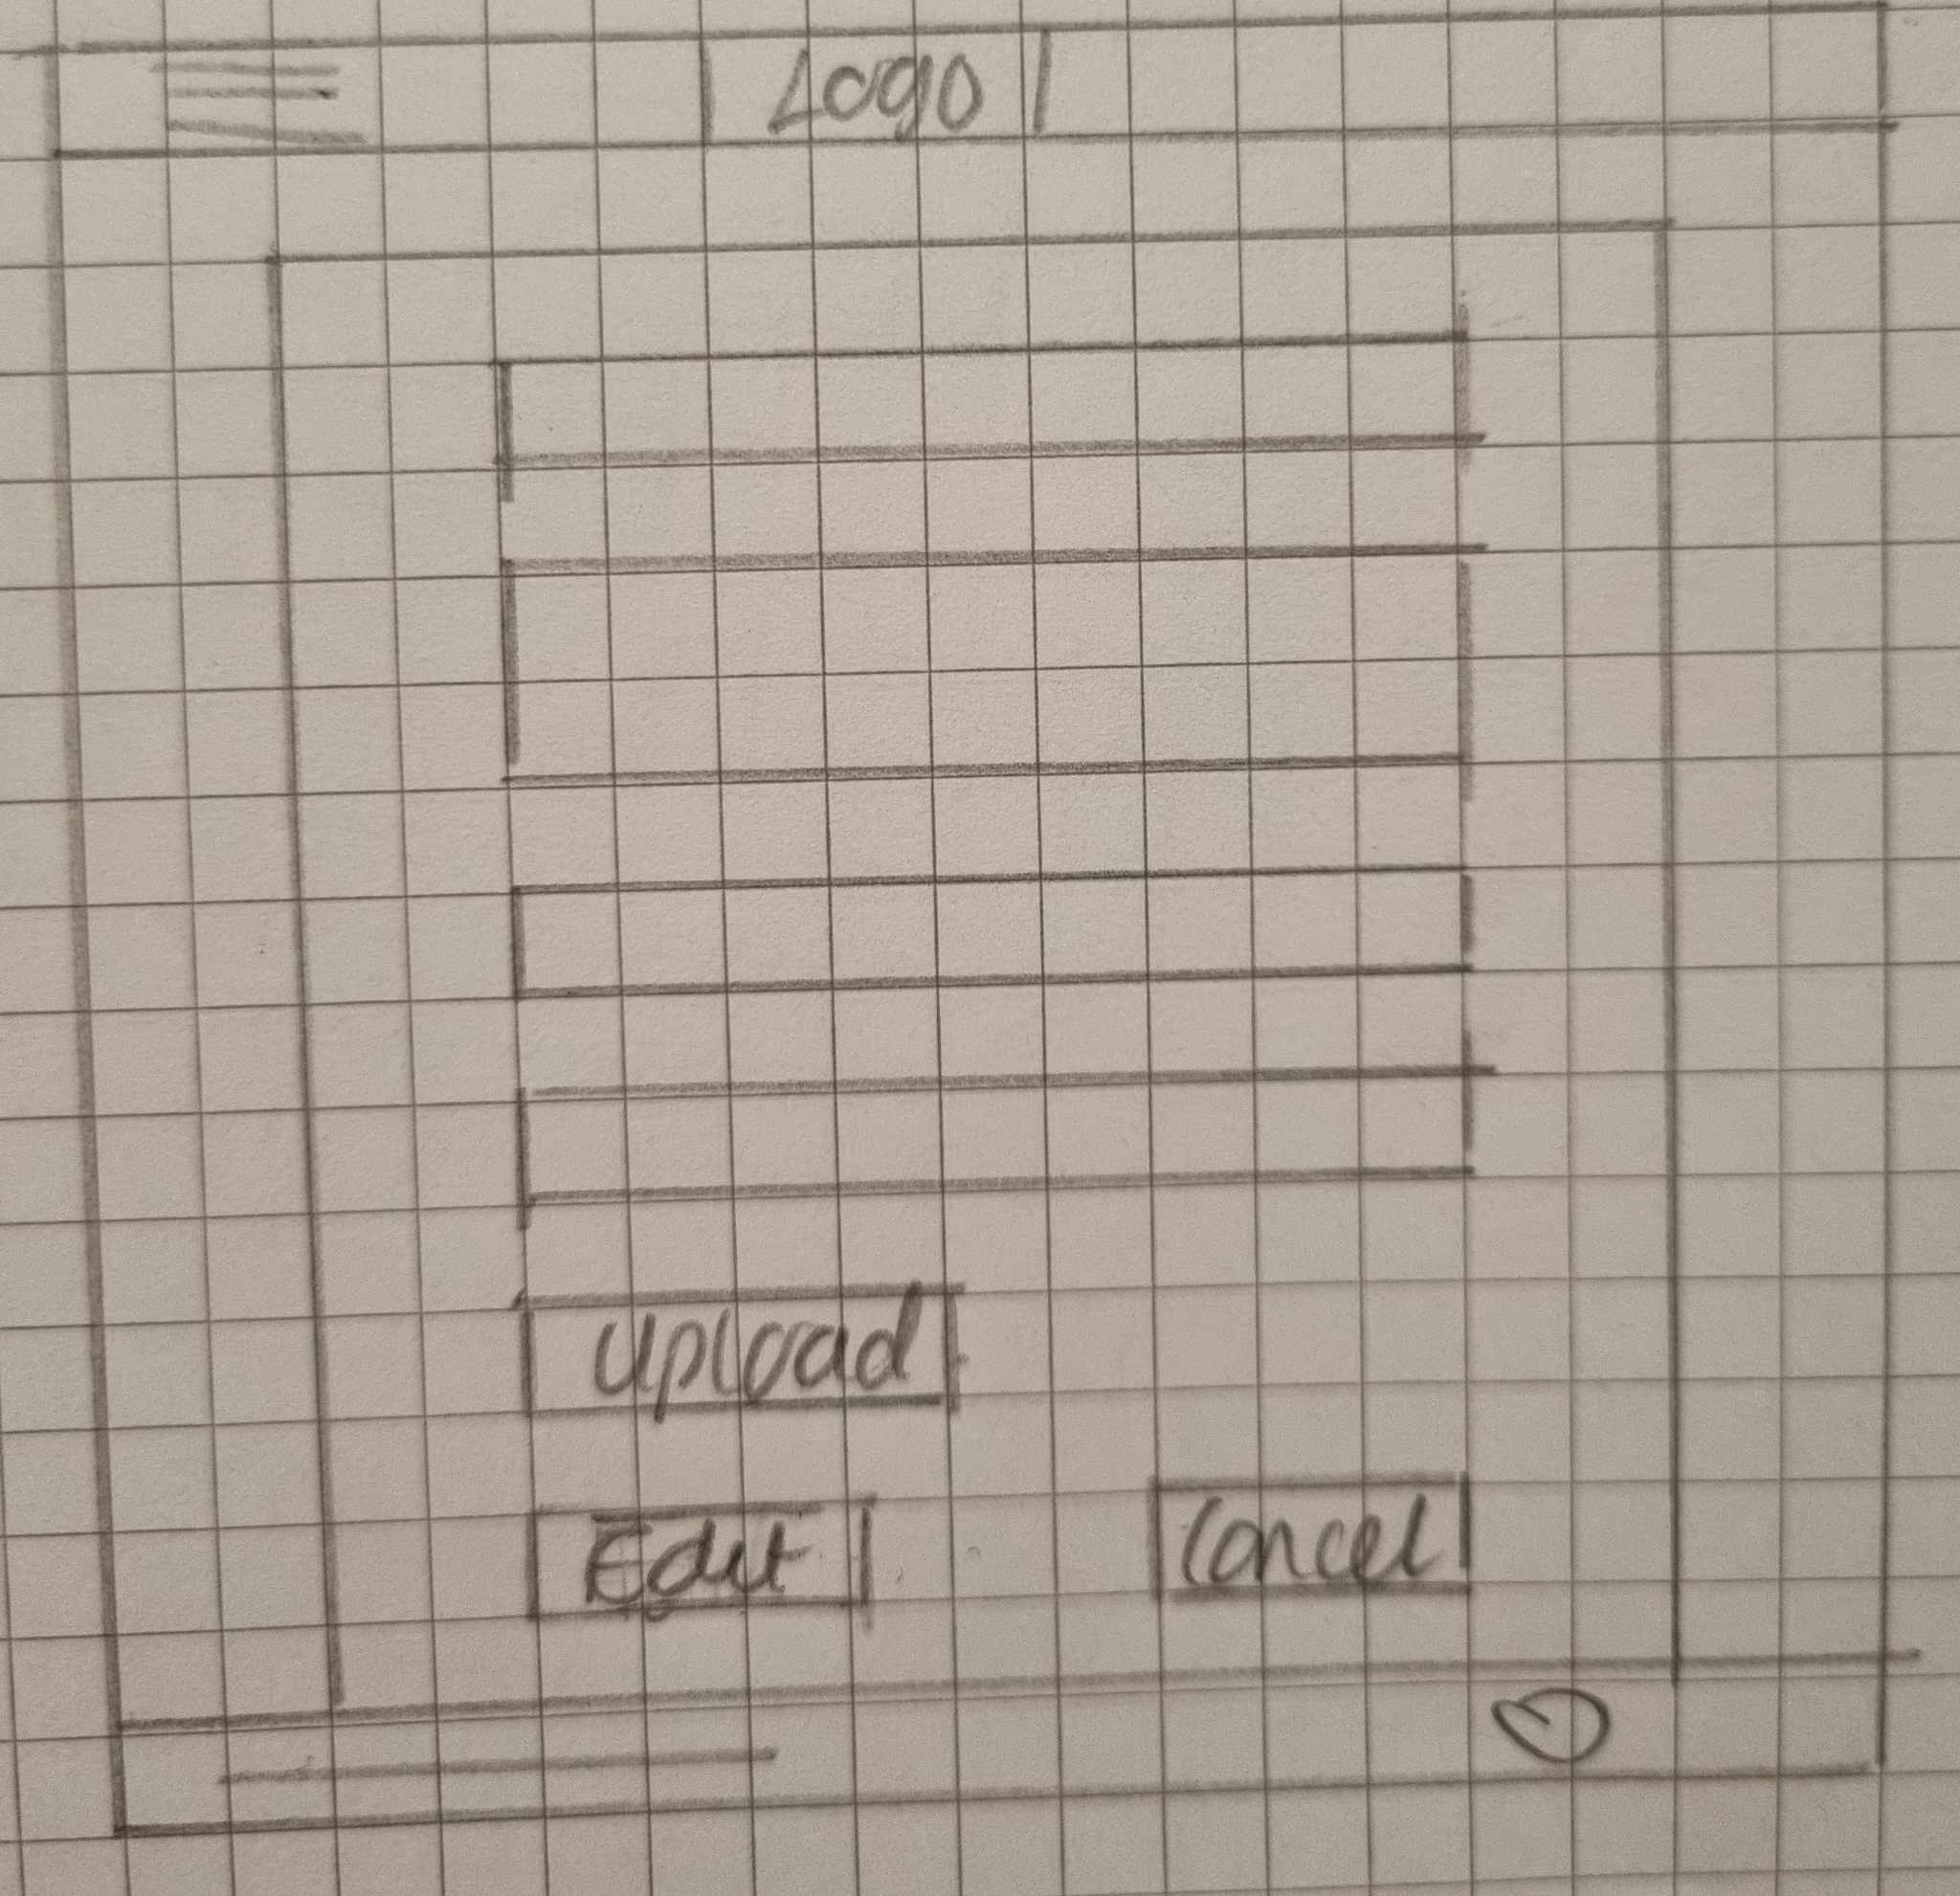 Logo
Upload
Edit
Cancel